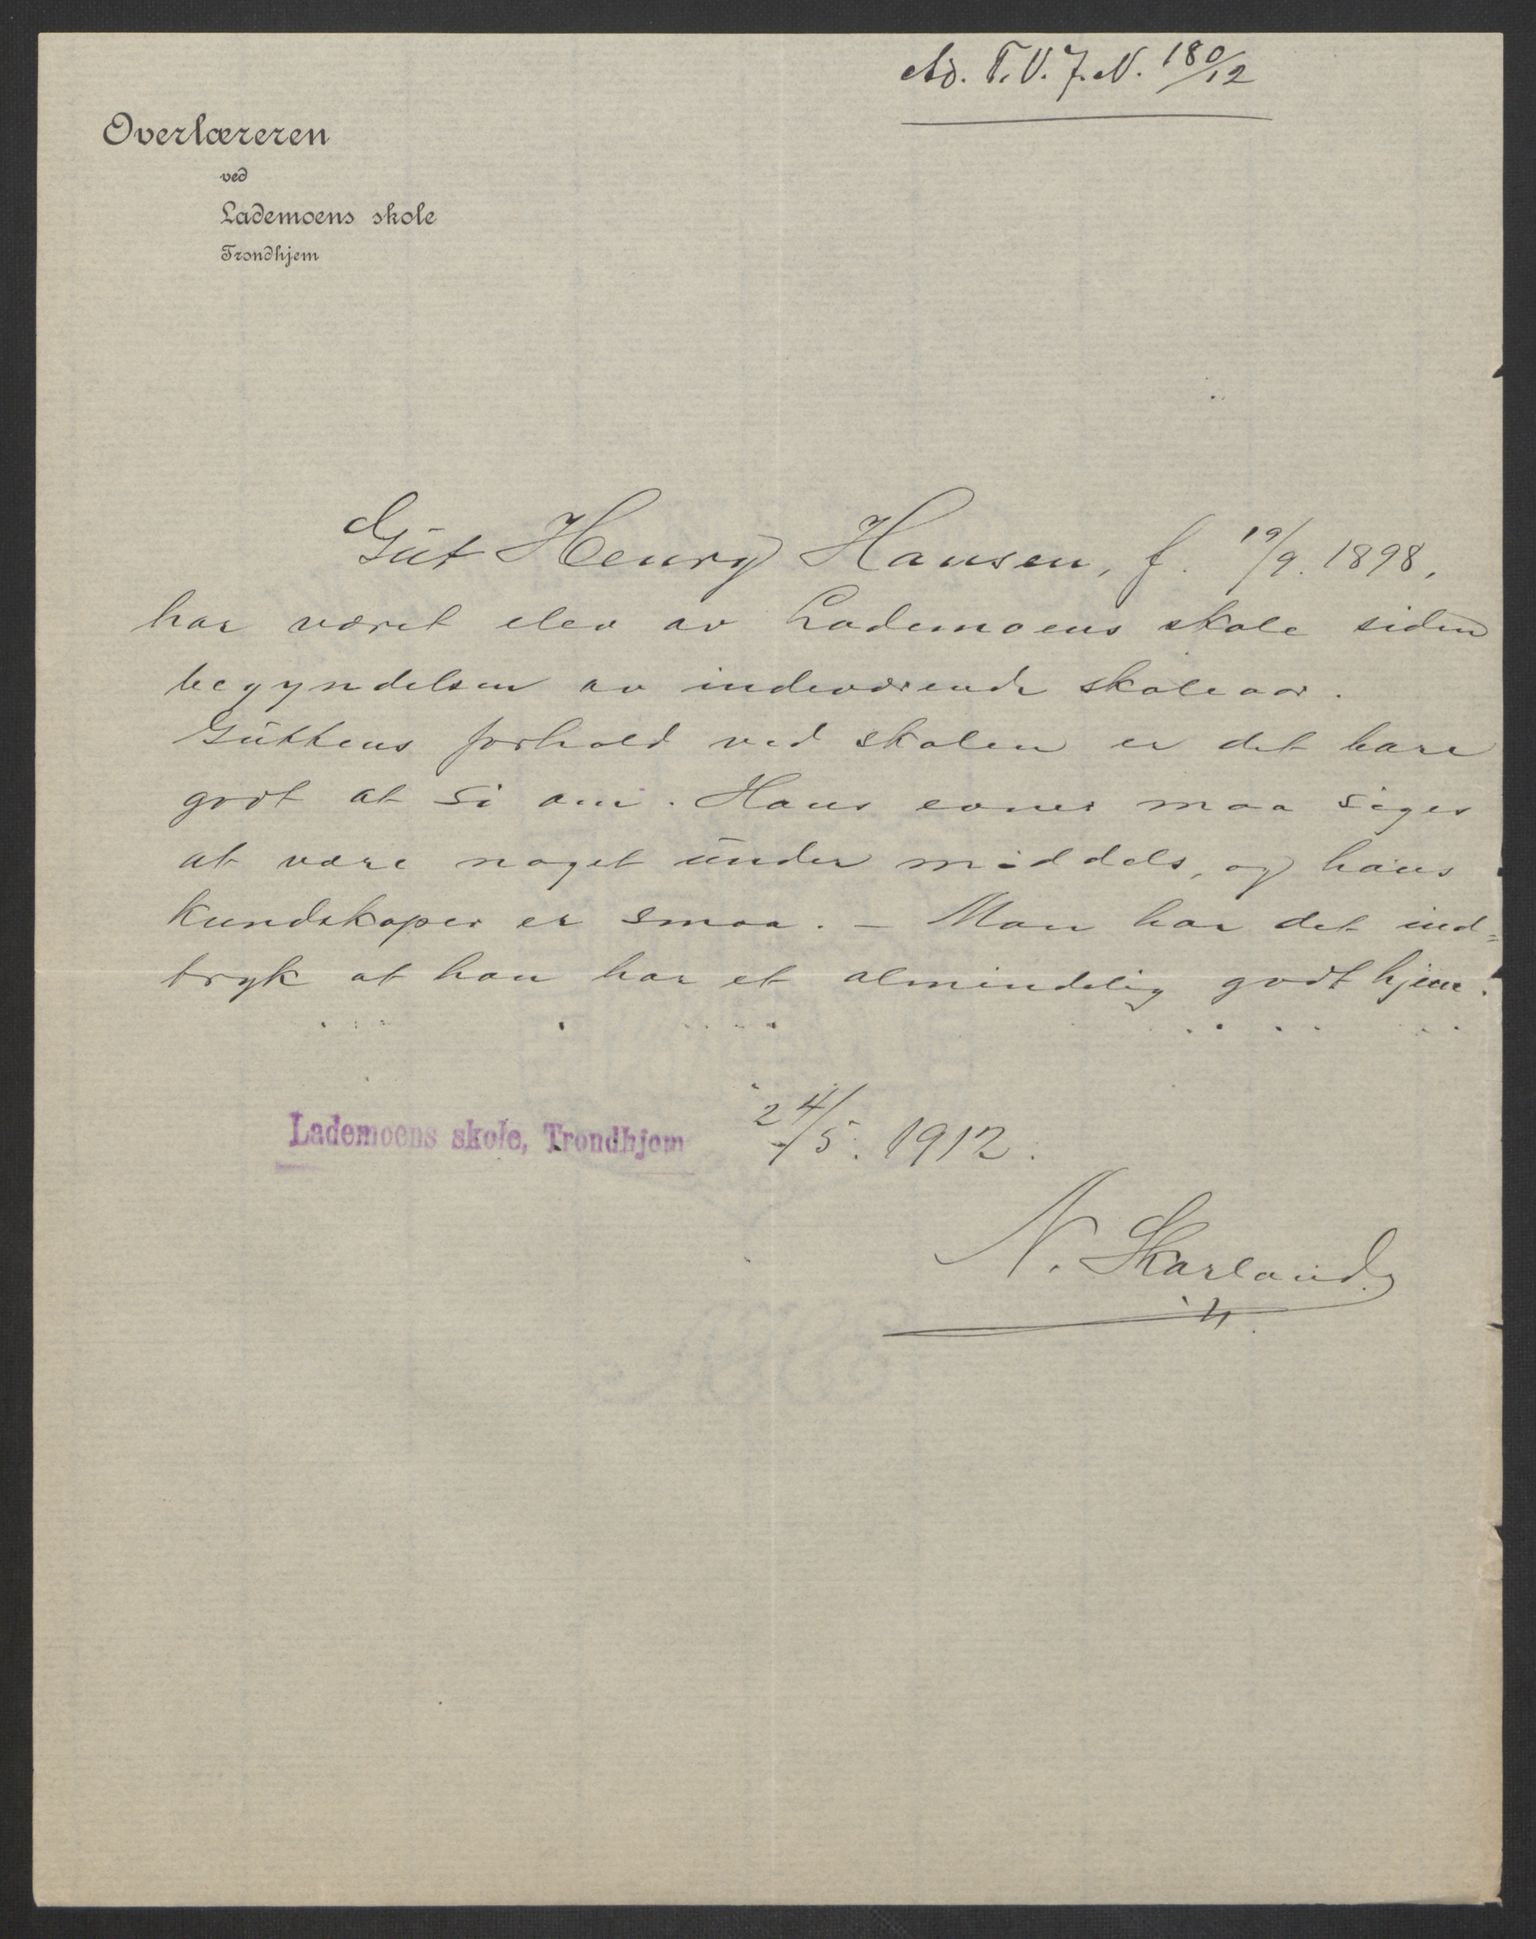 Ad. T. V. J. N. 180/12
Overlæreren
ved
Lademoens skole
Trondhjem
Gut Henry Hansen, f. 19/9. 1898,
har været elev av Lademoens skole siden
begyndelsen av indeværende skoleaar.
Guttens forhold ved skolen er det bare
godt at si om. Hans evner maa siges
at være noget under middels, og hans
kundskaper er smaa. – Man har det ind=
tryk at han har et almindelig godt hjem.
Lademoens skole, Trondhjem 24/5. 1912.
N. Skarland